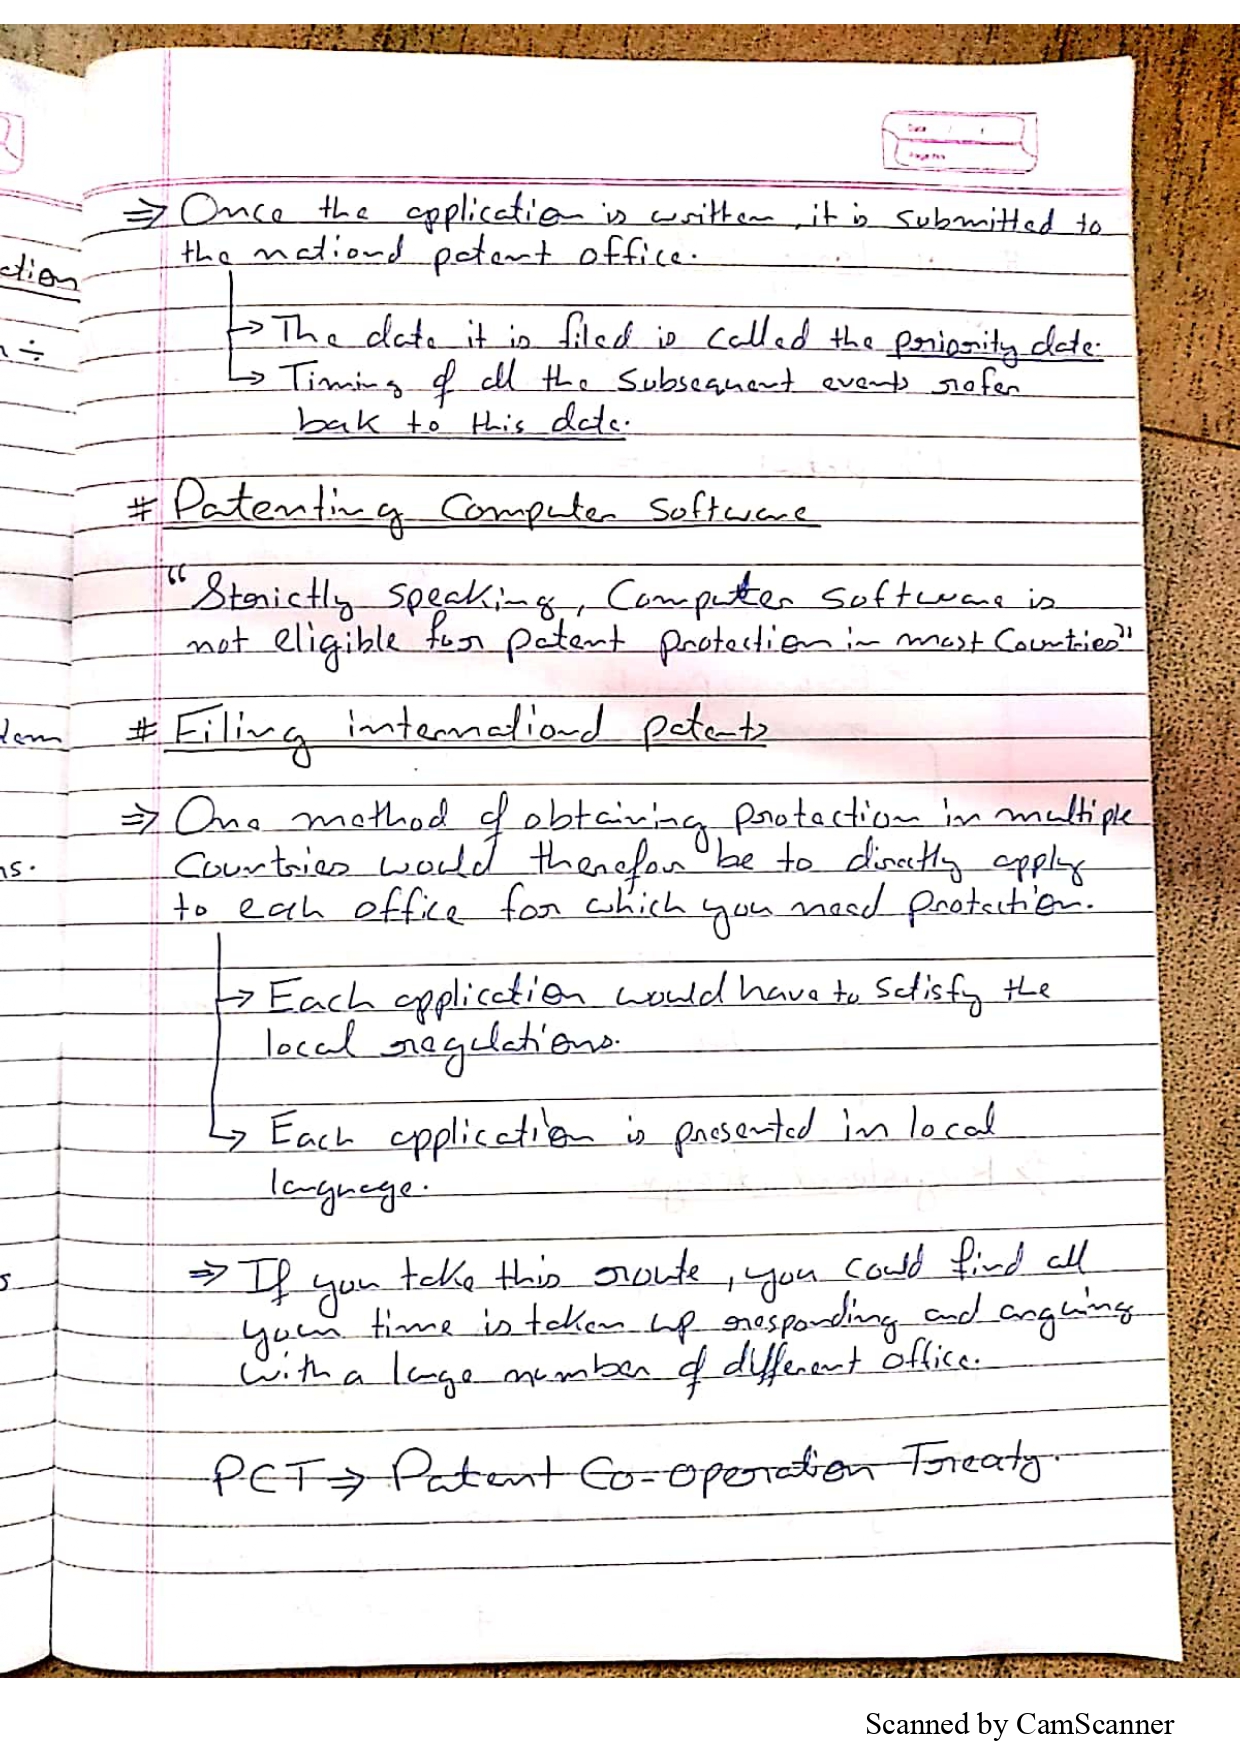 Date / /
Page No
⇒ Once the application is written, it is submitted to
the national patent office.
→ The date it is filed is called the priority date.
→ Timing of all the subsequent events refer
bak to this date.
# Patenting Computer Software
"Strictly speaking, Computer software is
not eligible for patent protection in most Countries"
# Filing international patents
⇒ One method of obtaining protection in multiple
Countries would therefor be to directly apply
to each office for which you need protection.
→ Each application would have to satisfy the
local regulations.
→ Each application is presented in local
language.
⇒ If you take this route, you could find all
your time is taken up responding and arguing
with a large number of different office.
PCT ⇒ Patent Co-operation Treaty.
ction
ns.
Scanned by CamScanner